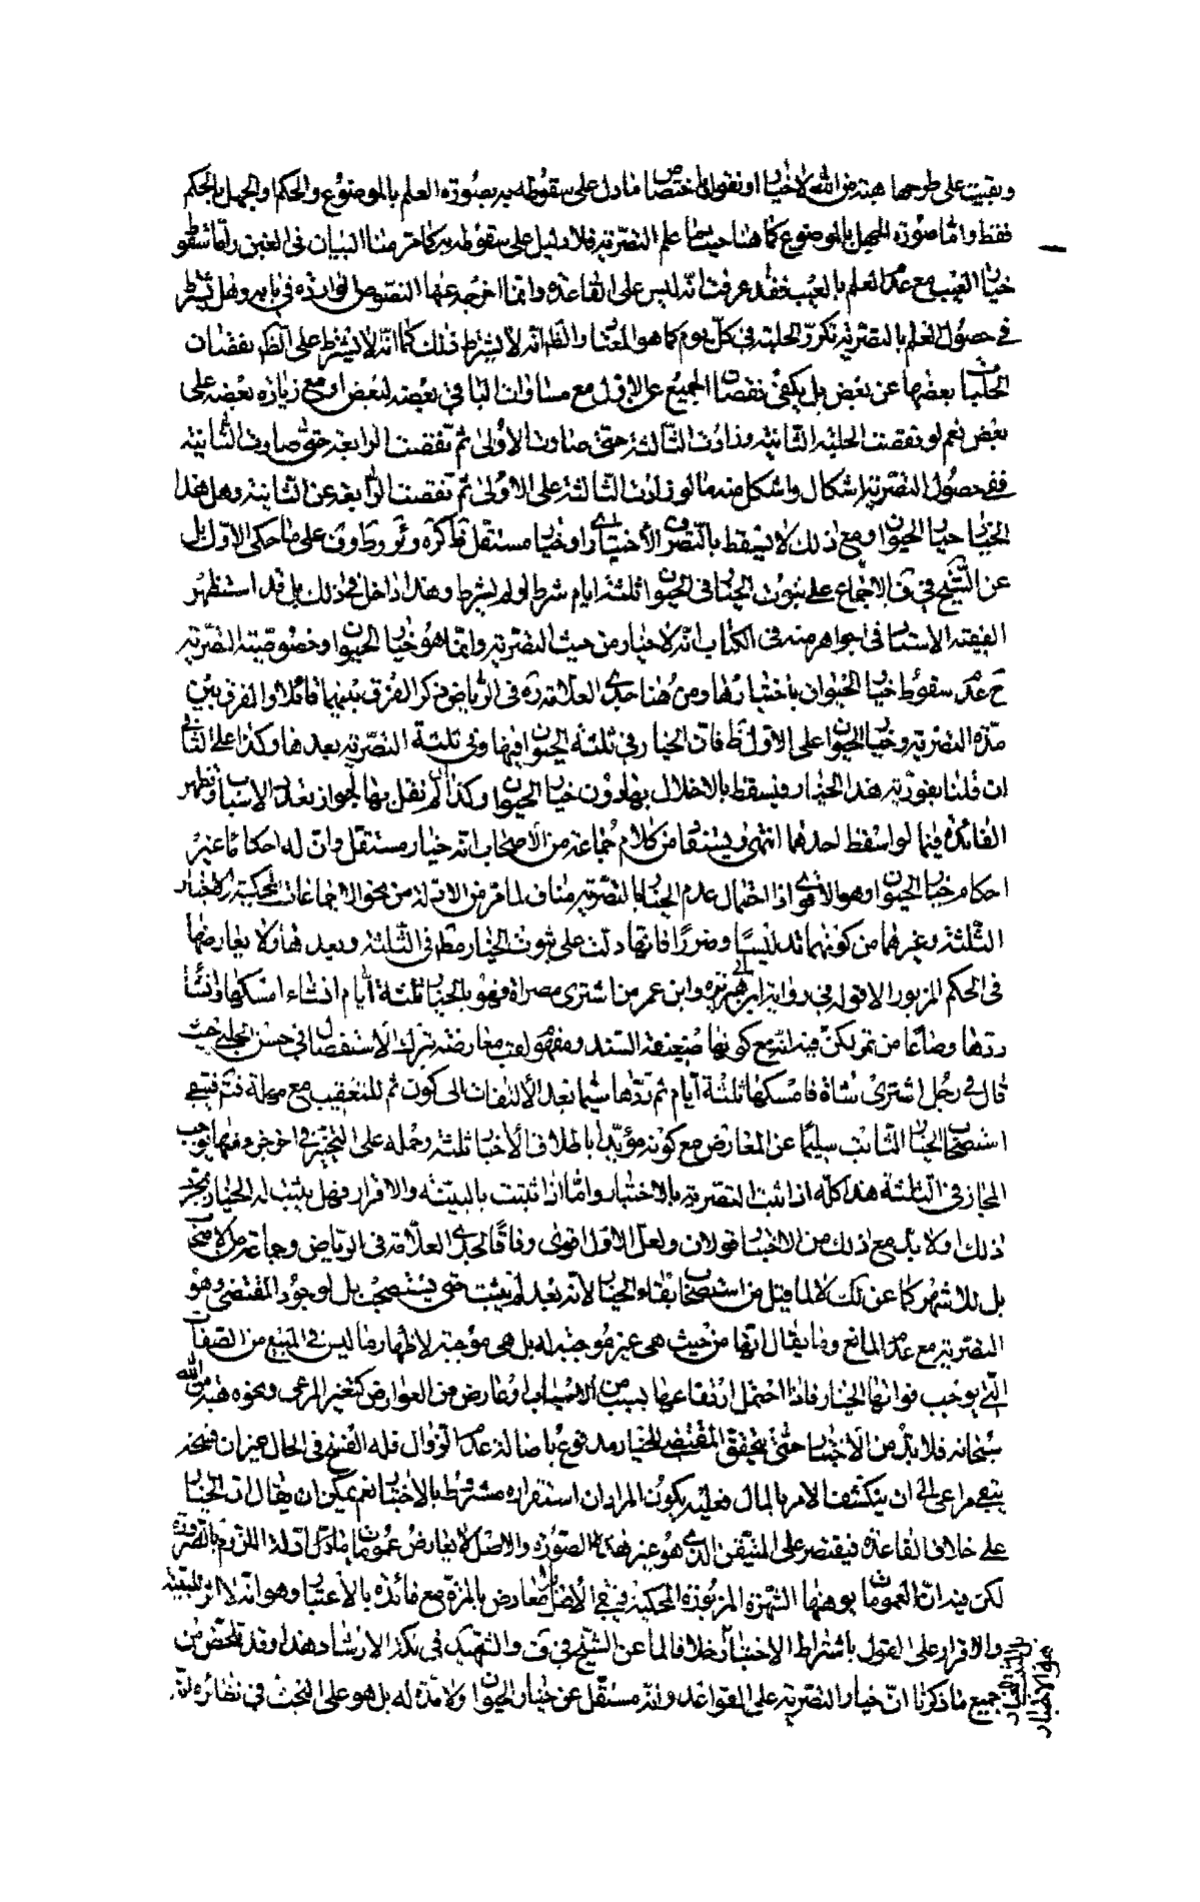 وبقيت على طرحها هبة من الله لا خيار او نقول باختصاص ما دل على سقوطه به بصورة العلم بالموضوع والحكم او الجهل بالحكم
فقط واما صورة الجهل بالموضوع كما هنا حيث ما علم التصرية فلا دليل على سقوطه به كما مر منا البيان فى الغبن واما سقوط
خيار العيب مع عدم العلم بالعيب فقد عرفت انه ليس على القاعدة وانما اخرجه عنها النصوص الواردة فى بابه وهل يشترط
فى حصول العلم بالتصرية تكرر الحلبة فى كل يوم كما هو المعتاد والظ انه لا يشترط ذلك كما انه لا يشترط على الظ نقصان
الحلبات بعضها عن بعض بل يكفى نقصان الجميع عن الاول مع مساوات الباقى بعضه لبعض او مع زيادة بعضه على
بعض نعم لو نقصت الحلبة الثانية وزادت الثالثة حتى صارت الاولى ثم نقصت الرابعة حتى صارت الثانية
ففى حصول التصرية اشكال واشكل منه ما لو زادت الثالثة على الاولى ثم نقصت الرابعة عن الثانية وهل هذا
الخيار خيار الحيوان او مع ذلك لا يسقط بالتصرف الاختيارى او خيار مستقل على ما حكى الاول بل
عن الشيخ فى ف الاجماع على ثبوت الخيار فى الحيوان ثلثة ايام شرط او لم يشرط وهذا داخل فى ذلك بل قد استظهر
الفقيه الاستاد فى جواهره منه فى الكتاب انه لا خيار من حيث التصرية وانما هو خيار الحيوان وخصوصية التصرية
ح عدم سقوط خيار الحيوان باختبارها ومن هنا جدى العلامة ره فى الرياض ذكر الفرق بينهما قائلا والفرق بين
مدة التصرية وخيار الحيوان على الاول ظ فان الخيار فى ثلثة الحيوان فيها وفى ثلثة التصرية بعدها وكذا على الثانى
ان قلنا بفورية هذا الخيار فيسقط بالاخلال بها دون خيار الحيوان وكذا ان لم نقل بها لجواز تعدد الاسباب وتظهر
الفائدة فيما لو اسقط احدهما انتهى ويستفاد من كلام جماعة من الاصحاب انه خيار مستقل وان له احكاما غير
احكام خيار الحيوان وهو الاقوى اذ احتمال عدم الخيار بالتصرية مناف لما مر من الادلة من نحو الاجماعات المحكية والاخبار
الثلثة وغيرهما من كونها تدليسا وضررا فانها دلت على ثبوت الخيار مط فى الثلثة وبعدها ولا يعارضها
فى الحكم المزبور الا قوله فى رواية ابى هريرة وابن عمر من اشترى مصراة فهو بالخيار ثلثة ايام ان شاء امسكها وان شاء
ردها وصاعا من تمر لكن فيه انه مع كونها ضعيفة السند ومفهوم لقب معارضة بترك الاستفصال فى حسن الحلبى حيث
قال فى رجل اشترى شاة فامسكها ثلثة ايام ثم ردها سيما بعد الالتفات الى كون ثم للتعقيب مع مهلة فتم فيبقى
استصحاب الخيار الثابت سليما عن المعارض مع كونه مؤيدا باطلاق الاخبار ثلثة وحمله على
المجاز فى الثلثة هذا كله اذا ثبت التصرية بالاختبار واما اذا ثبتت بالبينة والاقرار فهل يثبت له الخيار بمجرد
ذلك او لا بد مع ذلك من الاختبار قولان ولعل الاول اقوى وفاقا لجدى العلامة فى الرياض وجماعة من الاصحاب
بل للاشهر كما عن لك لا لما قيل من استصحاب بقاء الخيار لانه بعد لم يثبت حتى يستصحب بل لوجود المقتضى وهو
التصرية مع عدم المانع وما يقال انها من حيث هى غير موجبة له بل هى موجبة لاظهار ما ليس فى المبيع من الصفات
التى يوجب فواتها الخيار فاذا احتمل ارتفاعها بسبب من الاسباب او عارض من العوارض كتغير المرعى ونحوه هبة من الله
سبحانه فلا بد من الاختبار حتى يتحقق المقتضى للخيار مدفوع باصالة عدم الزوال فله الفسخ فى الحال غير ان فسخه
يبقى مراعى الى ان ينكشف الامر بالمال فعليه يكون المراد ان استقراره مشروط بالاختبار نعم يمكن ان يقال ان الخيار
على خلاف القاعدة فيقتصر على المتيقن الذى هو غير هذه الصورة والاصل لا يعارض عموم ما دل ادلة اللزوم
لكن فيه ان العمومات يوهنها الشهرة المزبورة المحكية فيبقى الاصل معارض بالمزة مع فائدة بالاعتبار وهو انه لا اثر للبينة
والاقرار على القول باشتراط الاختبار خلافا لما عن الشيخ فى ف والتهذيب فى نكت الارشاد هذا وقد تلخص من
جميع ما ذكرنا ان خيار التصرية على القواعد وانه مستقل عن خيار الحيوان ولا مدة له بل هو على البحث فى نظائره لنا
هو الاختبار